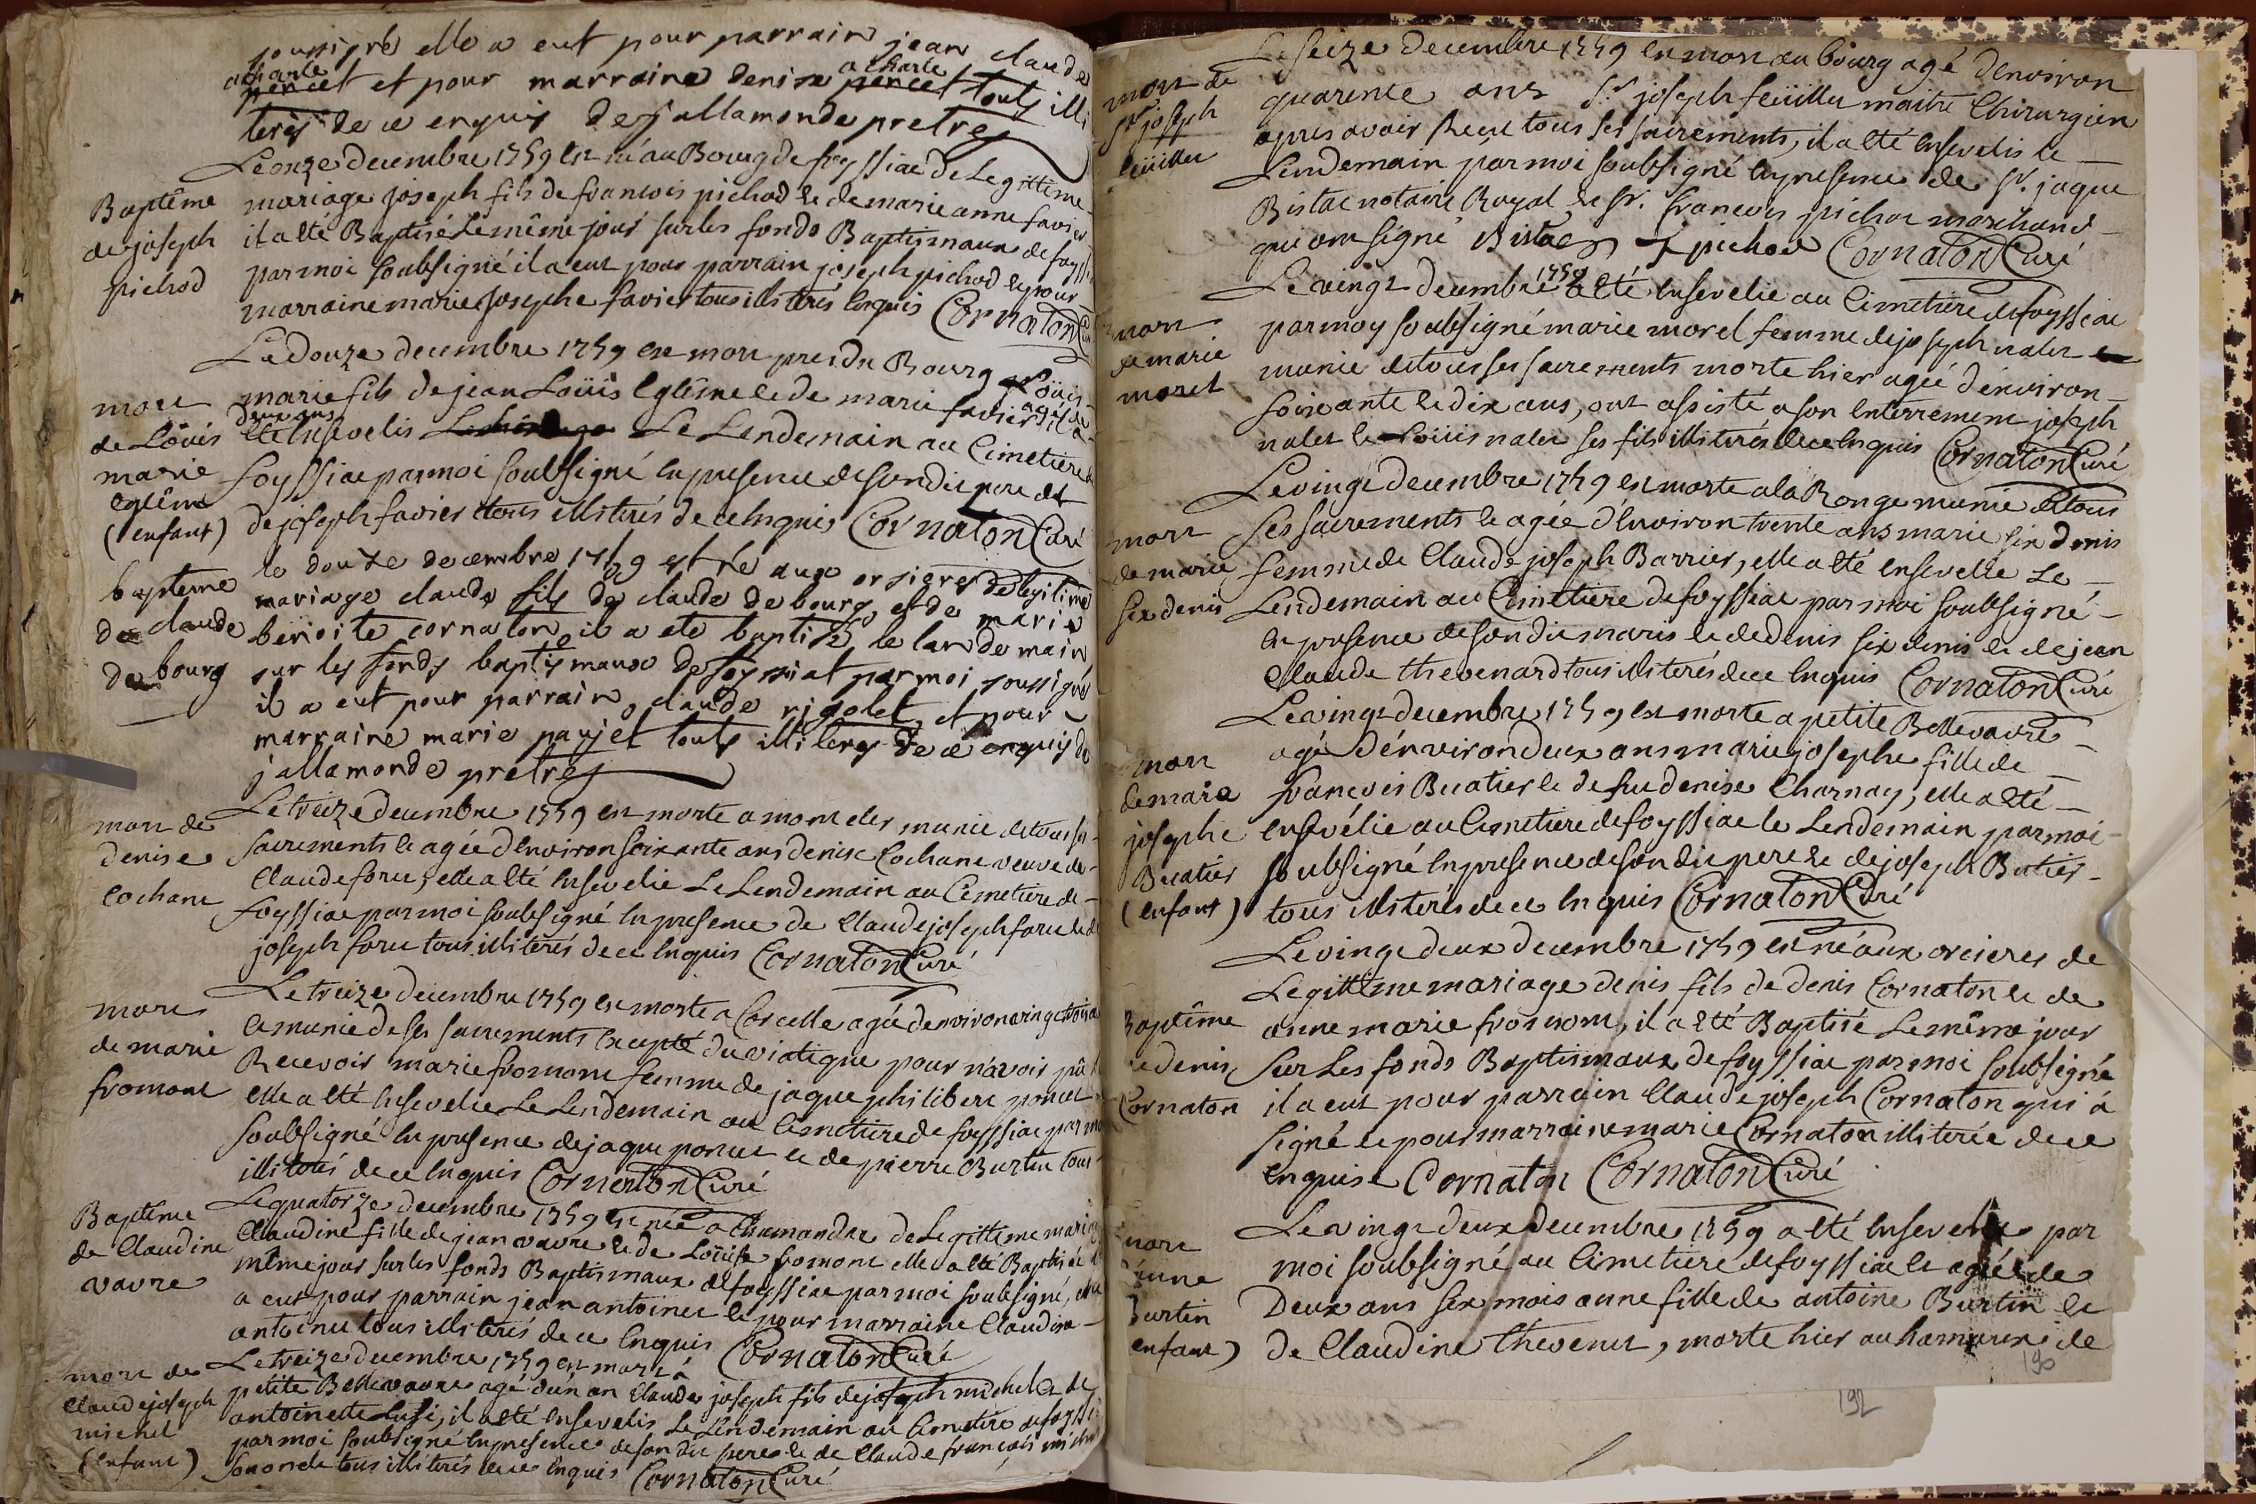 soussigné elle a eut pour parrain jean claude
acharle
poncet et pour marraine denise poncet touts illi
acharle
terés de ce enquis Dejallamonde pretre
Baptême
de joseph
pichod
Le onze decembre 1759 est né au Bourg de foyssiac de Legittime
mariage joseph fils de francois pichod et de marie anne favier
il a été Baptisé le même jour sur les fonds Baptismaux de foyssi
par moi soubsigné il a eut pour parrain joseph pichod et pour
marraine marie josephe favier tous illiterés enquis Cornaton Cu
mort
de Loüis
marie
eglême
(enfant)
Le Douze decembre 1759 est mort pres du Bourg Loüis
marie fils de jean Loüis Eglême et de marie favier agé de
deux ans
été ensevelis Le Lendemain au Cimetiere de
foyssiac par moi soubsigné en presence de son dit pere et
de joseph favier tous illiterés de ce enquis Cornaton Curé
bapteme
de claude
de bourg
le douze decembre 1759 est né aux orsieres de legitime
mariage claude fils de claude de bourg et de marie
benoite cornaton il a eté baptisé le lendemain
sur les fonds baptismaux de foyssiat par moi soussigné
il a eut pour parrain claude rigolet et pour
marraine marie panjet touts illiteres de ce enquis De
jallamonde pretre
mort de
denise
cochant
Le treize decembre 1759 est morte a montelier munie de tous ses
sacrements et agée d'environ soixante ans denise Cochant veuve de
Claude foret, elle a été ensevelie Le Lendemain au Cimetiere de
foyssiac par moi soubsigné en presence de Claude joseph foret et de
joseph foret tous illiterés de ce enquis Cornaton Curé
mort
de marie
fromont
Le treize decembre 1759 est morte a Corcelle agée d'environ vingt trois a
et munie de ses sacrements Excepté du viatique pour n'avoir pû l
Recevoir marie fromont femme de jaque philibert poncet
elle a été ensevelie Le Lendemain au Cimetiere de foyssiac par moi
soubsigné en presence de jaque poncet et de pierre Burtin tous
illiterés de ce enquis Cornaton Curé
Baptême
de Claudine
vavre
Le quatorze decembre 1759 est née a Chamandre de Legittime mariag
Claudine fille de jean vavre et de Loüise fromont elle a été Baptisée le
même jour sur les fonds Baptismaux de foyssiac par moi soubsigné, elle
a eut pour parrain jean antoinet et pour marraine Claudine
antoinet tous illiterés de ce enquis Cornaton Curé
mort de
Claude joseph
michel
(enfant)
Le treize decembre 1759 est mort a
petite Bellevavre agé d'un an Claude joseph fils de joseph michel et de
antoinette il a été ensevelis Le Lendemain au Cimetiere de foyssi
par moi soubsigné en presence de son dit pere et de Claude françois michel
son oncle tous illiterés de ce enquis Cornaton Curé
mort de
Sr joseph
feüillet
Le seize decembre 1759 est mort au bourg agé d'environ
quarente ans Sr. joseph feüillet maitre Chirurgien
apres avoir Receut tous ses sacrements, il a été ensevelis le
Lendemain par moi soubsigné en presence de Sr. jaque
Bistac notaire Royal et Sr. francois pichot marchand
qui ont signé Bistac f pichod Cornaton Curé
mort
de marie
morel
Le vingt decembre 1759 a été ensevelie au Cimetiere de foyssiac
par moy soubsigné marie morel femme de joseph nalet
munie de tous ses sacrements morte hier agée d'environ
soixante et dix ans, ont assisté a son enterrement joseph
nalet et Loüis nalet ses fils illiterés de ce enquis Cornaton Curé
mort
de marie
six denis
Le vingt decembre 1759 est morte a la Ronge munie de tous
ses sacrements et agée d'Environ trente ans marie six denis
femme de Claude joseph Barrier, elle a été ensevelie Le
Lendemain au Cimetiere de foyssiac par moi soubsigné
en presence de son dit maris et de denis six denis et de jean
Claude thevenard tous illiterés de ce enquis Cornaton Curé
mort
de marie
josephe
Buatier
(enfant)
Le vingt decembre 1759 est morte a petite Bellevavre
agé d'environ deux ans marie josephe fille de
francois Buatier et de feu denise Charnay, elle a été
ensevélie au Cimetiere de foyssiac le Lendemain par moi
soubsigné en presence de son dit pere et de joseph Butier
tous illiterés de ce enquis Cornaton Curé
Baptême
de denis
Cornaton
Le vingt deux decembre 1759 est né aux orcieres de
Legittime mariage denis fils de denis Cornaton et de
anne marie fromont, il a été Baptisé Le même jour
sur Les fonds Baptismaux de foyssiac par moi soubsigné
il a eut pour parrain Claude joseph Cornaton qui a
signé et pour marraine marie Cornaton illiterée de ce
enquise Cornaton Cornaton Curé
mort
d'anne
Burtin
enfant)
Le vingt deux decembre 1759 a été ensevelie par
moi soubsigné au Cimetiere de foyssiac et agée de
Deux ans six mois anne fille de antoine Burtin et
de Claudine thevenet, morte hier au hameaux de
190
192